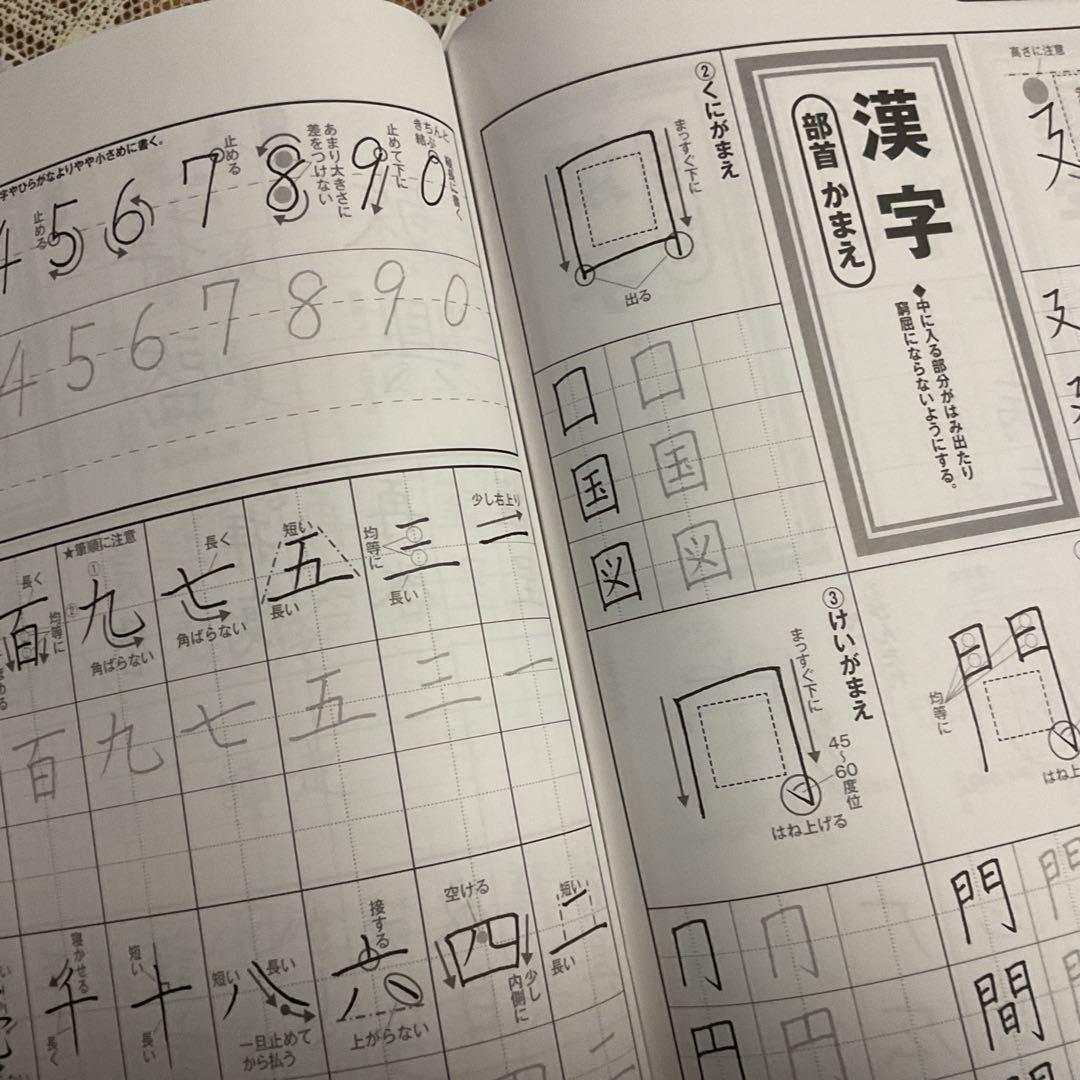 字やひらがなよりやや小さめに書く。
4 5 6 7 8 9 0
止める
止める
あまり大きさに
差をつけない
止めて下に
きちんと
結ぶ
4 5 6 7 8 9 0
少し右上り
一
均等に
長い
三
短い
長い
五
長く
角ばらない
七
★筆順に注意
①
②
角ばらない
九
長く
均等に
百
一 三 五 七 九 百
短い
長い
二
空ける
少し
内側に
四
接する
上がらない
六
短い
長い
一旦止めて
から払う
八
短い
長い
十
寝かせる
長く
千
漢字
部首 かまえ
◆中に入る部分がはみ出たり
窮屈にならないようにする。
高さに注意
②くにがまえ
まっすぐ下に
出る
囗 囗
国 国
図 図
③けいがまえ
まっすぐ下に
45〜60度位
はね上げる
冂 冂
円 円
均等に
門 門
間